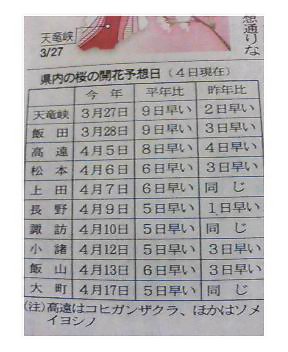 想通りな
天竜峡
3/27
県内の桜の開花予想日（４日現在）
今年 平年比 昨年比
天竜峡 3月27日 9日早い 2日早い
飯田 3月28日 9日早い 3日早い
高遠 4月5日 8日早い 4日早い
松本 4月6日 6日早い 3日早い
上田 4月7日 6日早い 同じ
長野 4月9日 5日早い 1日早い
諏訪 4月10日 5日早い 同じ
小諸 4月12日 5日早い 3日早い
飯山 4月13日 6日早い 3日早い
大町 4月17日 5日早い 同じ
(注)高遠はコヒガンザクラ、ほかはソメ
イヨシノ